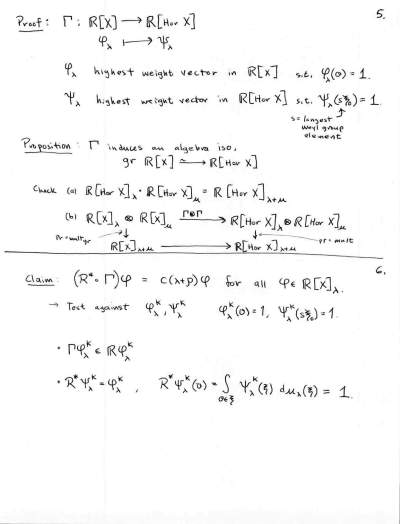 5.
Proof: Γ: ℝ[X] ⟶ ℝ[Hor X]
φ_λ ⟼ ψ_λ
φ_λ highest weight vector in ℝ[X] s.t. φ_λ(o) = 1.
ψ_λ highest weight vector in ℝ[Hor X] s.t. ψ_λ(sξ_o) = 1.
s = longest
Weyl group
element
Proposition: Γ induces an algebra iso,
gr ℝ[X] ⥲ ℝ[Hor X]
Check (a) ℝ[Hor X]_λ · ℝ[Hor X]_μ = ℝ[Hor X]_{λ+μ}
(b) ℝ[X]_λ ⊗ ℝ[X]_μ Γ⊗Γ ⟶ ℝ[Hor X]_λ ⊗ ℝ[Hor X]_μ
pr∘mult ↓ ↓ pr∘mult
ℝ[X]_{λ+μ} ⟶ ℝ[Hor X]_{λ+μ}
6.
Claim: (R* ∘ Γ)φ = c(λ+ρ)φ for all φ ∈ ℝ[X]_λ.
→ Test against φ_λ^K, ψ_λ^K φ_λ^K(o) = 1, ψ_λ^K(sξ_o) = 1.
• Γφ_λ^K ∈ ℝψ_λ^K
• R*ψ_λ^K = φ_λ^K, R*ψ_λ^K(o) = ∫_{o∈ξ} ψ_λ^K(ξ) dμ_λ(ξ) = 1.